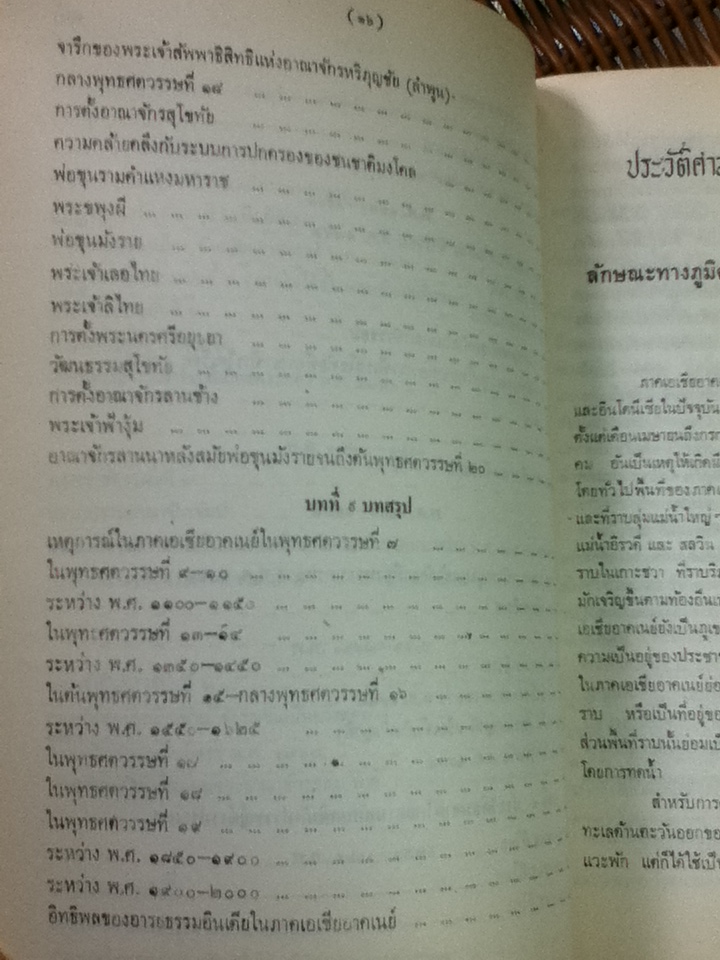 (๑๖)
จารึกของพระเจ้าสัพพาธิสิทธิแห่งอาณาจักรหริภุญชัย (ลำพูน)
กลางพุทธศตวรรษที่ ๑๘ ... ... ... ... ... ... ...
การตั้งอาณาจักรสุโขทัย ... ... ... ... ... ... ...
ความคล้ายคลึงกับระบบการปกครองของชนชาติมงโกล
พ่อขุนรามคำแหงมหาราช ... ... ... ... ... ... ...
พระขพุงผี ... ... ... ... ... ... ... ... ...
พ่อขุนมังราย ... ... ... ... ... ... ... ...
พระเจ้าเลอไทย ... ... ... ... ... ... ... ...
พระเจ้าลิไทย ... ... ... ... ... ... ... ...
การตั้งพระนครศรีอยุธยา ... ... ... ... ... ... ...
วัฒนธรรมสุโขทัย ... ... ... ... ... ... ... ...
การตั้งอาณาจักรลานช้าง ... ... ... ... ... ... ...
พระเจ้าฟ้างุ้ม ... ... ... ... ... ... ... ...
อาณาจักรลานนาหลังสมัยพ่อขุนมังรายจนถึงต้นพุทธศตวรรษที่ ๒๐ ...
บทที่ ๕ บทสรุป
เหตุการณ์ในภาคเอเชียอาคเนย์ในพุทธศตวรรษที่ ๗ ... ... ...
ในพุทธศตวรรษที่ ๙—๑๐ ... ... ... ... ... ... ...
ระหว่าง พ.ศ. ๑๑๐๐—๑๑๕๐ ... ... ... ... ... ...
ในพุทธศตวรรษที่ ๑๓—๑๔ ... ... ... ... ... ...
ระหว่าง พ.ศ. ๑๓๕๐—๑๔๕๐ ... ... ... ... ... ...
ในต้นพุทธศตวรรษที่ ๑๕—กลางพุทธศตวรรษที่ ๑๖ ... ... ...
ระหว่าง พ.ศ. ๑๕๕๐—๑๖๒๕ ... ... ... ... ...
ในพุทธศตวรรษที่ ๑๗ ... ... ... ... ... ... ...
ในพุทธศตวรรษที่ ๑๘ ... ... ... ... ... ... ...
ในพุทธศตวรรษที่ ๑๙ ... ... ... ... ... ... ...
ระหว่าง พ.ศ. ๑๘๕๐—๑๙๐๐ ... ... ... ... ... ...
ระหว่าง พ.ศ. ๑๙๐๐—๒๐๐๐ ... ... ... ... ... ...
อิทธิพลของอารยธรรมอินเดียในภาคเอเชียอาคเนย์ ... ... ...
ประวัติศา
ลักษณะทางภูมิ
ภาคเอเชียอาค
และอินโดนีเซียในปัจจุบัน
ตั้งแต่เดือนเมษายนถึงกรก
คม อันเป็นเหตุให้เกิดมี
โดยทั่วไปพื้นที่ของภาค
และที่ราบลุ่มแม่น้ำใหญ่ๆ
แม่น้ำอิรวดี และ สลวิน
ราบในเกาะชวา ที่ราบริม
มักเจริญขึ้นตามท้องถิ่น
เอเชียอาคเนย์ยังเป็นภูเข
ความเป็นอยู่ของประชา
ในภาคเอเชียอาคเนย์ย่อ
ราบ หรือเป็นที่อยู่ขอ
ส่วนพื้นที่ราบนั้นย่อมเป็
โดยการทดน้ำ
สำหรับการ
ทะเลด้านตะวันออกขอ
แวะพัก แต่ก็ได้ใช้เป็